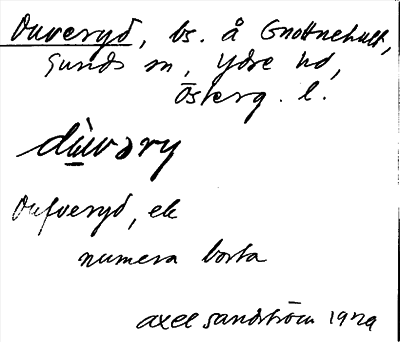 Duveryd, bs. å Gnottnehult,
Sunds sn, Ydre hd,
Österg. l.
dùvəry
Dufveryd, ek
numera borta
Axel Sandström 1929